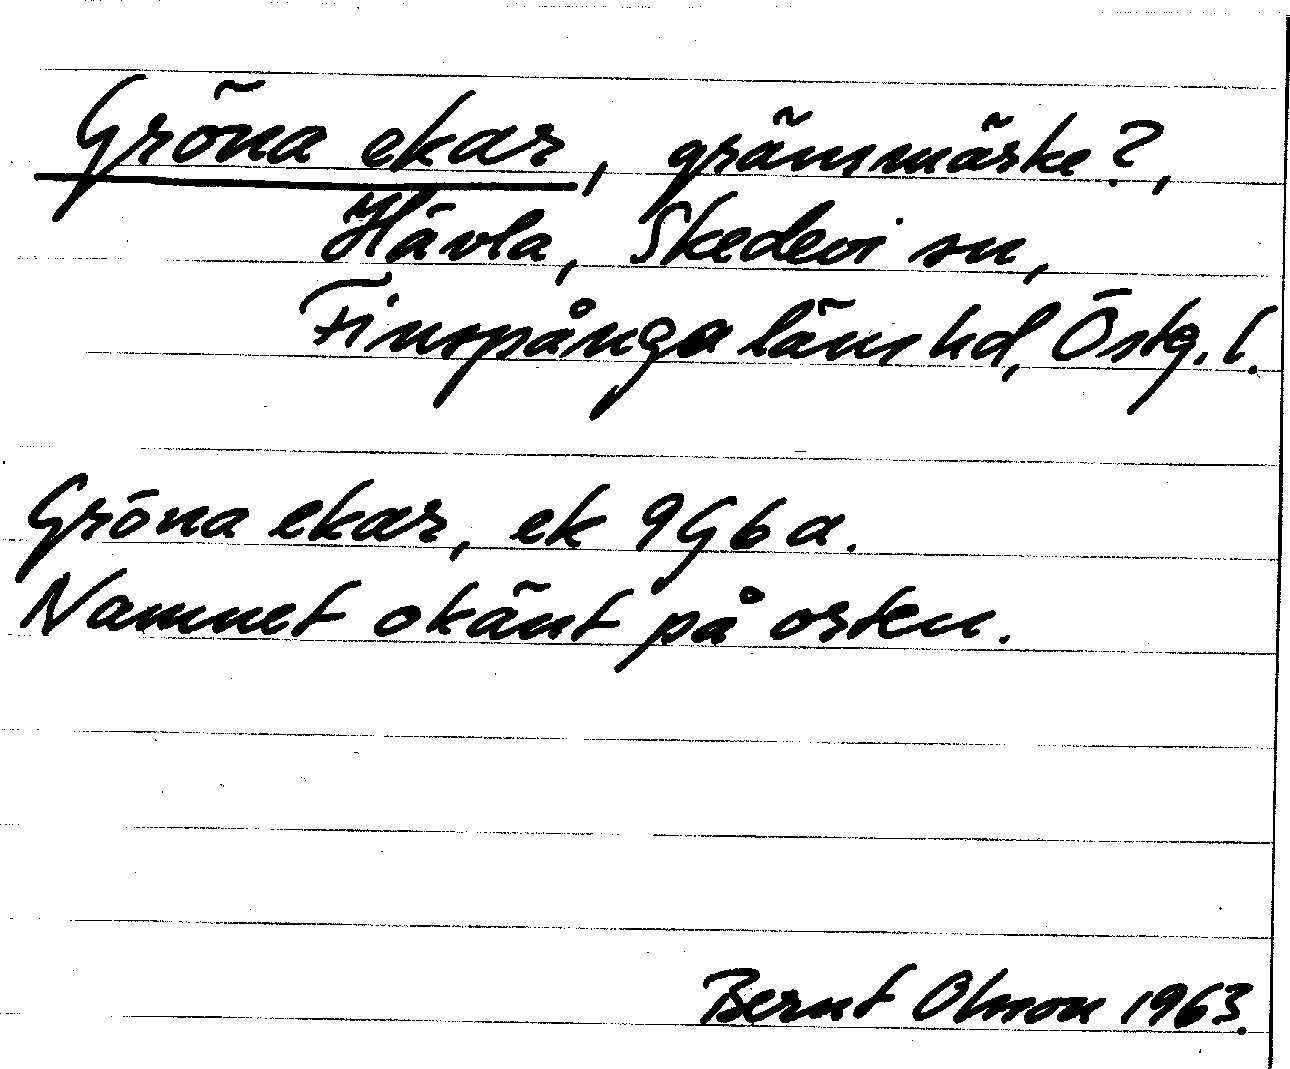 Gröna ekar, gränsmärke?,
Hävla, Skedevi sn,
Finspånga läns hd, Östg. l.
Gröna ekar, ek 9G6a.
Namnet okänt på orten.
Bernt Olsson 1963.